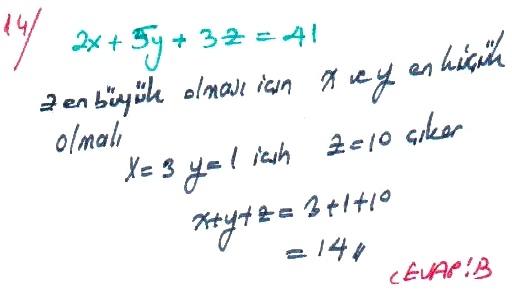 14/
2x + 5y + 3z = 41
z en büyük olması için x ve y en küçük
olmalı
x = 3 y = 1 için z = 10 çıkar
x+y+z = 3+1+10
= 14 //
CEVAP: B